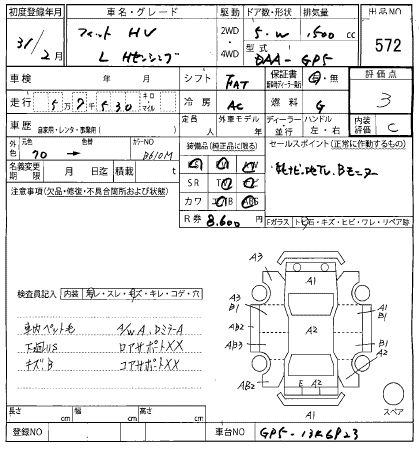 初度登録年月 車名・グレード 駆動 ドア数・形状 排気量 出品NO
31/2月 フィット HV 2WD 5.W 1,500 cc 572
L Hセンシング 4WD 型式 DAA-GP5
車検 年 月 シフト FAT 保証書 有・無 評価点
走行 5万7千530 キロ・マイル 冷房 AC 燃料 G 3
車歴 自家用・レンタ・事業用( ) 定員 人 外車モデル 年 ディーラー・並行 ハンドル 左・右 内装評価 C
外色 元色 70 → 色替 カラーNO B610M 装備品(純正品に限る) セールスポイント(正常に作動するもの)
名義変更期限 月 日迄 積載 t SR 純ナビ,地TV,Bモニター
注意事項(欠品・修復・不具合箇所および状態) カワ
R券 8,600円 Fガラス トビ石・キズ・ヒビ・ワレ・リペア跡
検査員記入 内装
スレ・キズ・キレ・コゲ・穴
車内ペット毛 A/W A, DミラーA
下廻りS ロアサポートXX
キズ,B コアサポートXX
A3 A1
A3 B1 A1 B1
AB2 A2
AB3 B1
AB2 E A2 A2
A1 スペア
長さ cm 幅 cm 高さ cm
登録NO 車台NO GP5-13